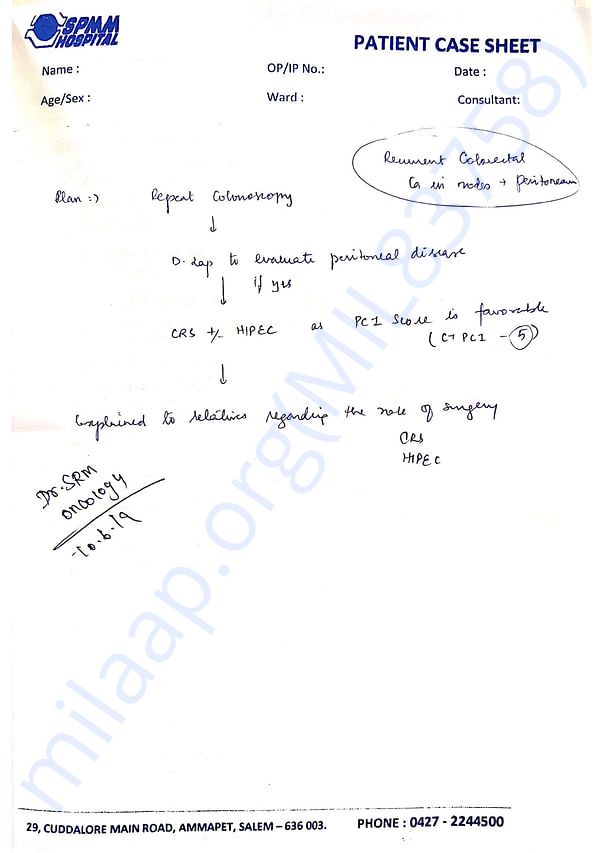 SPMM
HOSPITAL
PATIENT CASE SHEET
Name : OP/IP No.: Date :
Age/Sex : Ward : Consultant:
Recurrent Colorectal
Ca in nodes + peritoneum
Plan :) Repeat Colonoscopy
↓
D. Lap to evaluate peritoneal disease
↓ if yes
CRS +/- HIPEC as PCI Score is favorable
(CT PCI - 5)
↓
Explained to relatives regarding the role of surgery
CRS
HIPEC
Dr. SRM
oncology
10.6.19
milaap.org(MIL_83758)
29, CUDDALORE MAIN ROAD, AMMAPET, SALEM – 636 003. PHONE : 0427 - 2244500